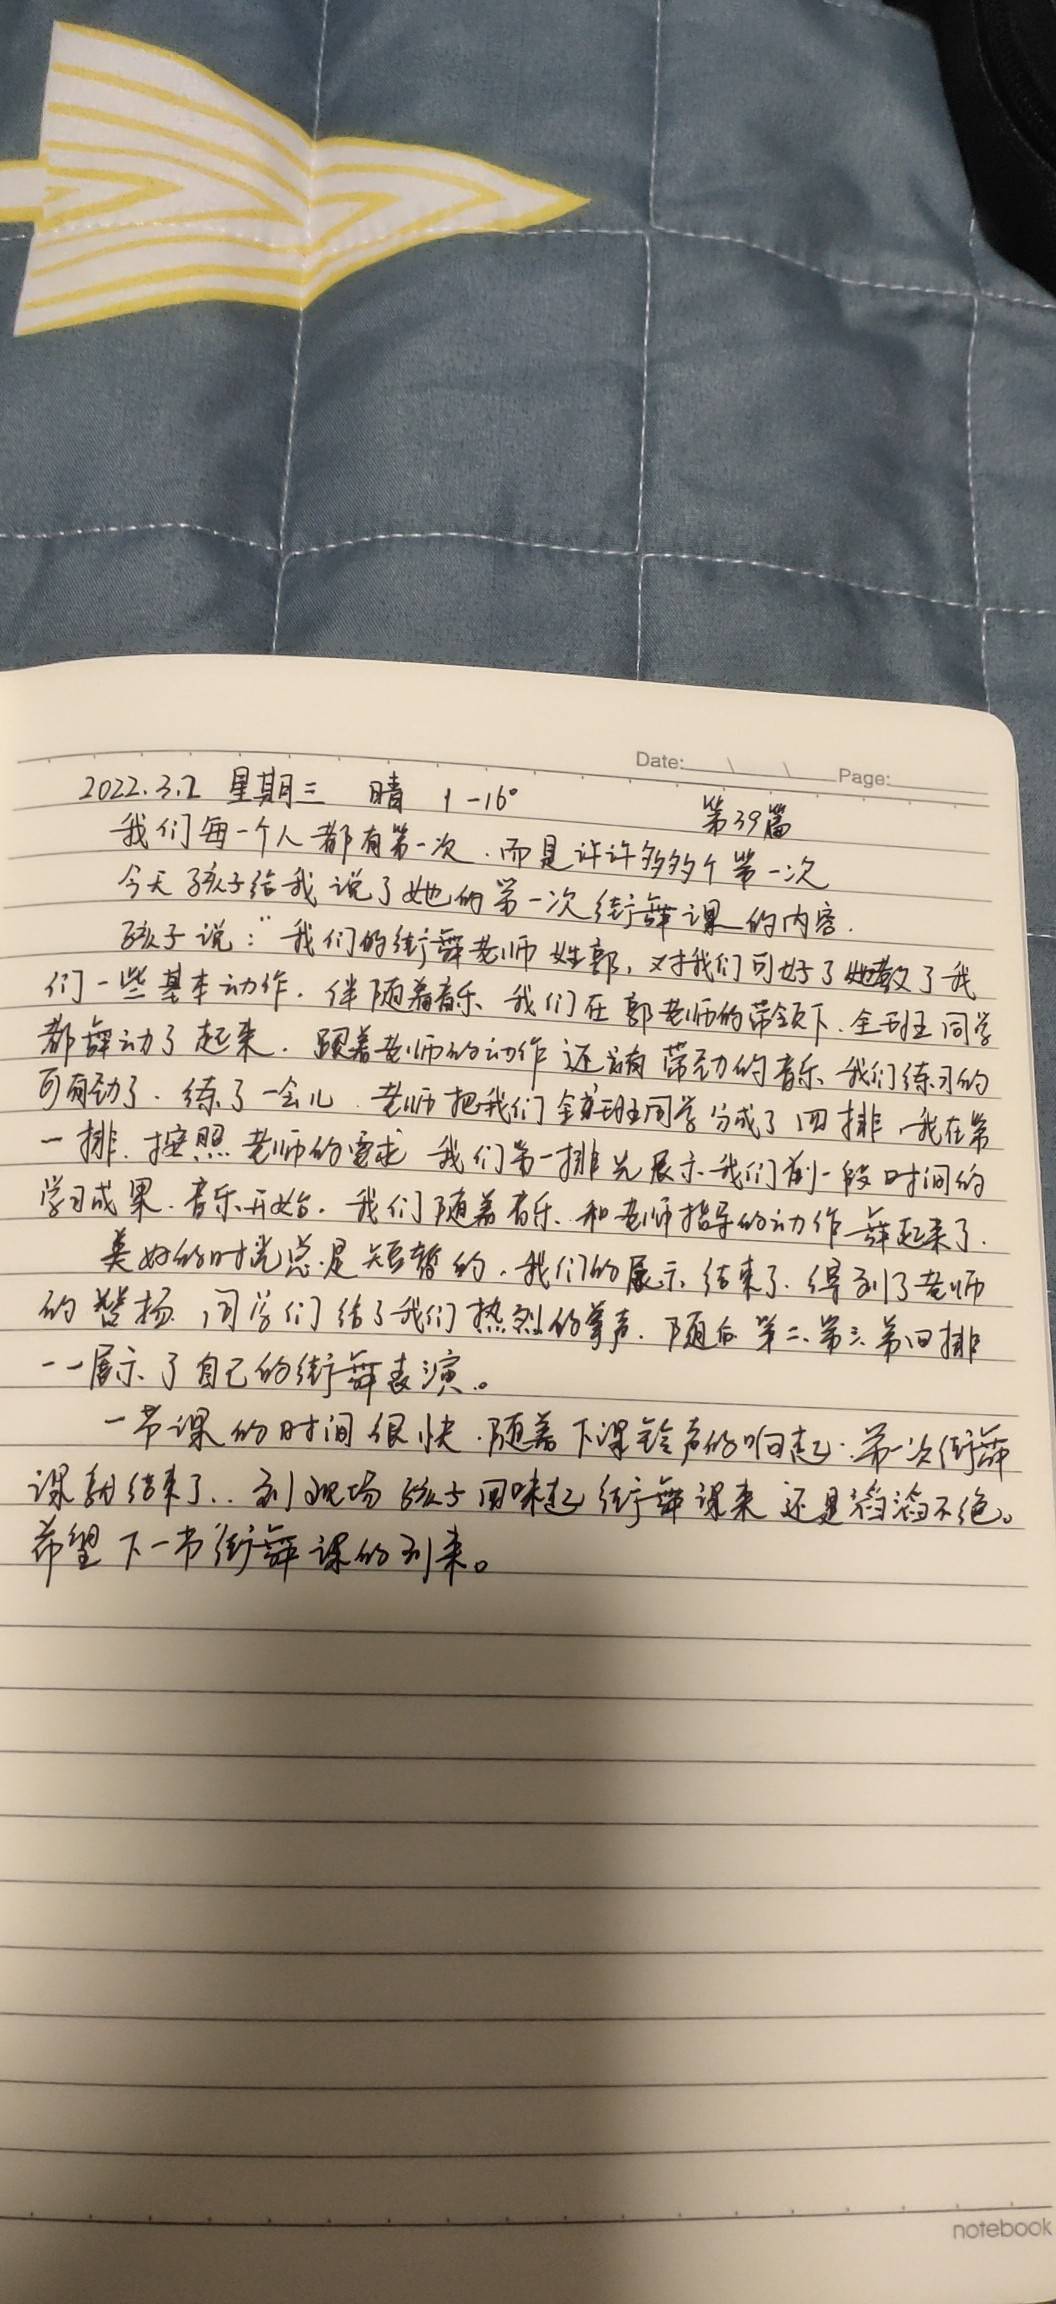 Date: \ \ Page:
2022.3.2 星期三 晴 1-16°
第39篇
我们每一个人都有第一次.而是许许多多个第一次
今天孩子给我说了她的第一次街舞课的内容.
孩子说:"我们的街舞老师姓郭,对我们可好了她教了我
们一些基本动作.伴随着音乐、我们在郭老师的带领下.全班同学
都舞动了起来.跟着老师的动作还有带劲的音乐、我们练习的
可有劲了.练了一会儿.老师把我们全班同学分成了四排,我在第
一排.按照老师的要求 我们第一排先展示我们前一段时间的
学习成果.音乐开始.我们随着音乐、和老师指导的动作舞起来了.
美好的时光总是短暂的.我们的展示结束了.得到了老师
的赞扬.同学们给了我们热烈的掌声.随后第二、第三、第四排
一一展示了自己的街舞表演。
一节课的时间很快.随着下课铃声的响起.第一次街舞
课结束了..到现场孩子回味起街舞课来还是滔滔不绝。
希望下一节街舞课的到来。
notebook